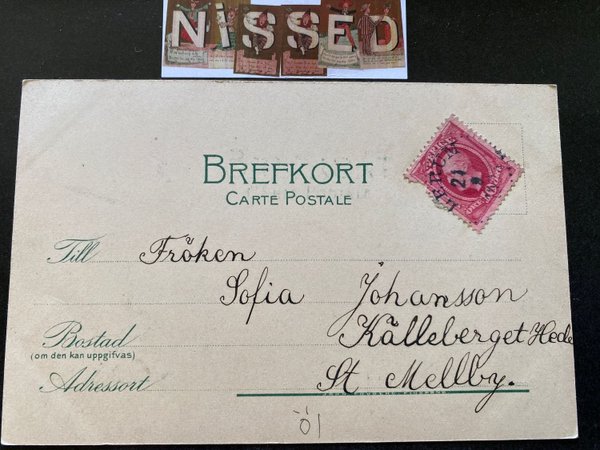 NISSED
BREFKORT
CARTE POSTALE
LERUM
21
Till Fröken
Sofia Johansson
Bostad Källeberget Hede
(om den kan uppgifvas)
Adressort St Mellby.
ö1